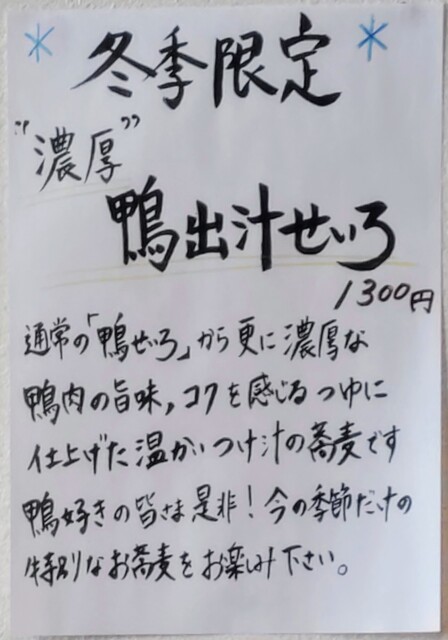 冬季限定
"濃厚"
鴨出汁せいろ
1300円
通常の「鴨せいろ」から更に濃厚な
鴨肉の旨味,コクを感じるつゆに
仕上げた温かいつけ汁の蕎麦です
鴨好きの皆さま是非!今の季節だけの
特別なお蕎麦をお楽しみ下さい。